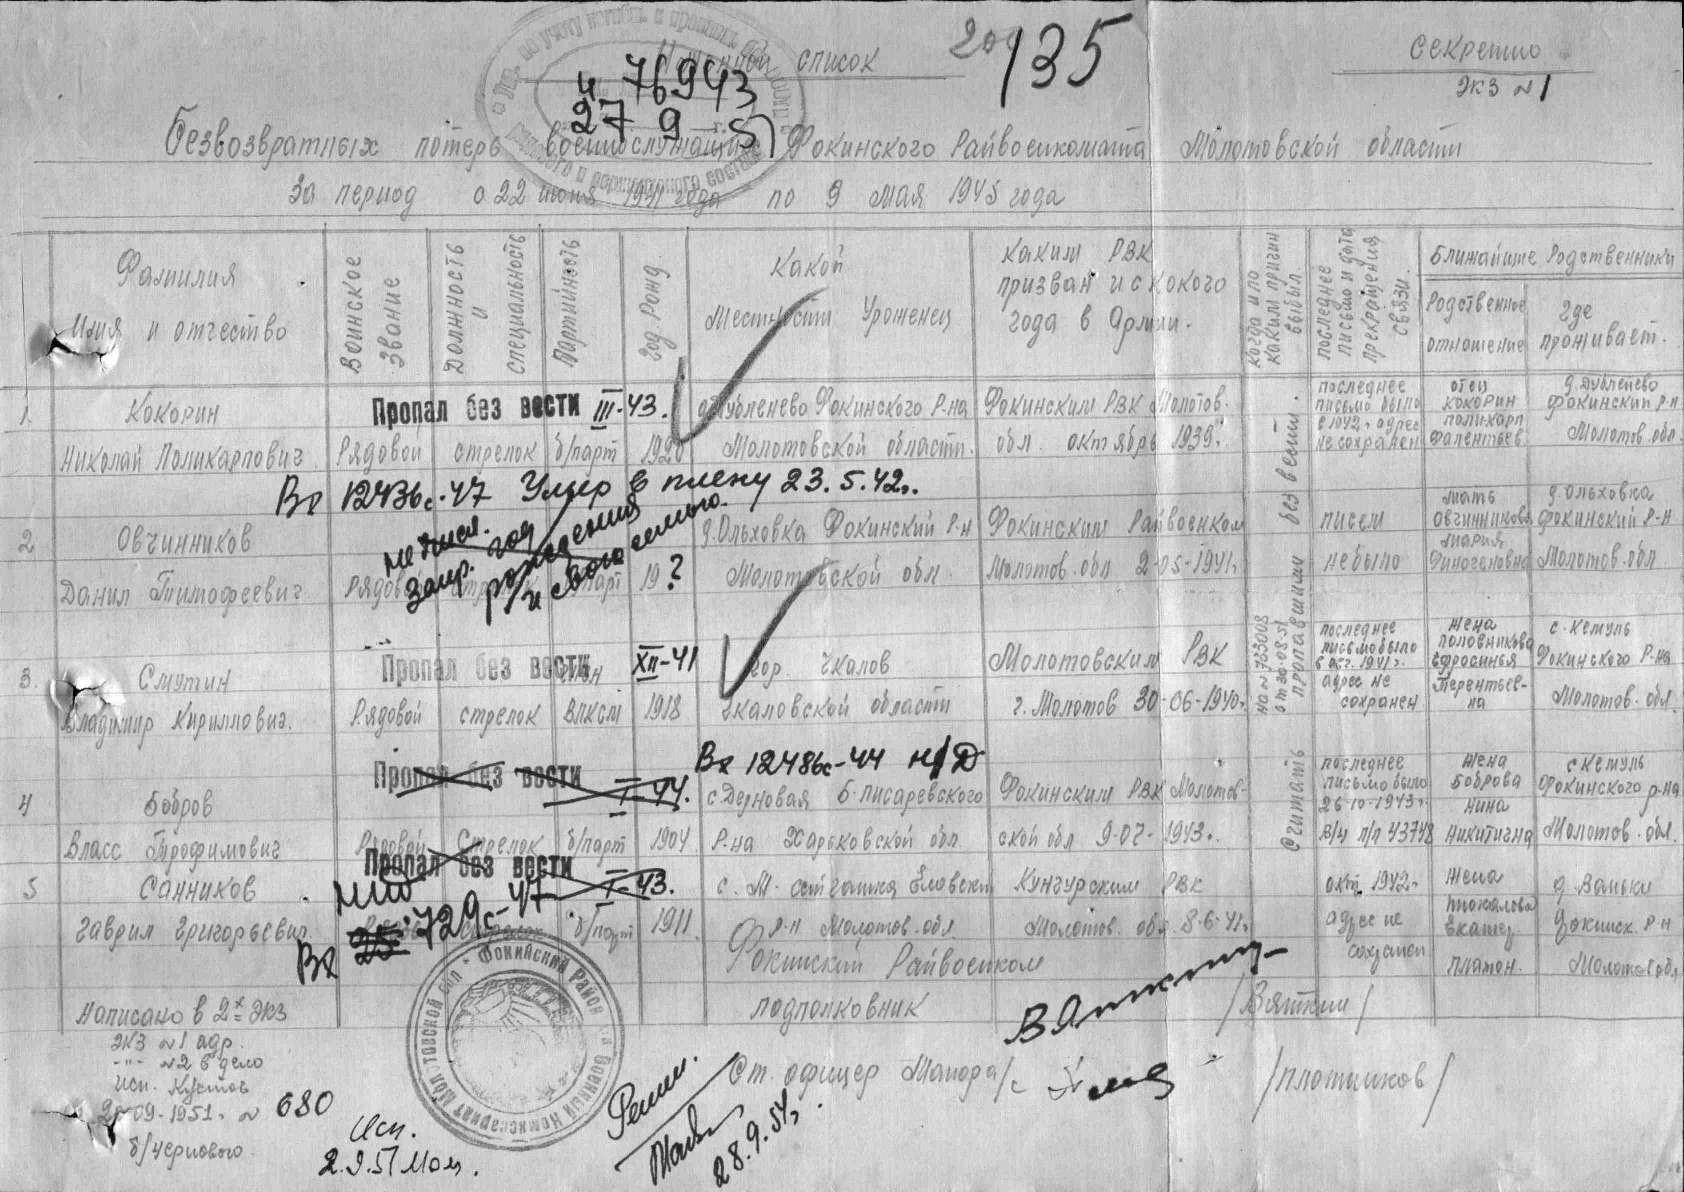 Именной список
135
Секретно
экз №1
№ 76943
27 9 51
Безвозвратных потерь военнослужащих Фокинского Райвоенкомата Молотовской области
за период с 22 июня 1941 года по 9 мая 1945 года
Фамилия
Имя и отчество
Воинское звание
Должность и специальность
Партийность
Год Рожд.
Какой
местности Уроженец
Каким РВК
призван и с какого
года в Армии.
Когда и по какой причин выбыл
последнее письмо и дата прекращения связи.
Ближайшие Родственники
Родственное отношение
где проживает.
1.
Кокорин
Николай Поликарпович
Пропал без вести III-43.
Рядовой стрелок б/парт 1920
д. Дубленево Фокинского Р-на
Молотовской области.
Фокинским РВК Молотов.
обл. октябрь 1939г.
последнее
письмо было
в 1942г адрес
не сохранен
отец
Кокорин
Поликарп
д. Дубленево
Фокинский Р-н
Молотов. обл.
Вх 12436с-47 Умер в плену 23.5.42г.
2
Овчинников
Данил Тимофеевич
запр. год
рождения
Рядово стрелок парт 19 ?
д. Ольховка Фокинский Р-н
Молотовской обл.
Фокинским Райвоенком
Молотов. обл 2-05-1941г.
писем
не было
мать
Овчинникова
Мария
д. Ольховка
Фокинский Р-Н
Молотов. обл
3.
Смутин
Владимир Кириллович.
Пропал без вести XII-41
Рядовой стрелок ВЛКСМ 1918
гор. Чкалов
Чкаловской области
Молотовским РВК
г. Молотов 30-06-1940г.
последнее
письмо было
в окт. 1941г.
адрес не
сохранен
жена
Половникова
Ефросинья
Терентьев-
на
с. Кемуль
Фокинского Р-на
Молотов. обл.
Считать пропавшими без вести.
Пропал без вести I-44.
Вх 12486с-44 н/Д
4
Бобров
Власс Трофимович
Рядовой Стрелок б/парт 1904
с Дерновая Б-Писаревского
Р-на Харьковской обл
Фокинским РВК Молотов-
ской обл 9-07-1943г.
последнее
письмо было
26-10-1943г.
в/ч п/п 43748
жена
Боброва
Нина
Никитична
с Кемуль
Фокинского р-на
Молотов. обл.
Пропал без вести I-43.
5
Санников
Гаврил Григорьевич.
Вх 729с-47
б/парт 1911
Р-н Молотов. обл
Кунгурским РВК
Молотов. обл 8-6-41г.
окт. 1942г
адрес не
сохранен
жена
Екатер.
Платон.
д. Ваньки
Фокинск. Р-н
Молотов обл
Фокинский Райвоенком
подполковник
/Вяткин/
Написано в 2х экз
экз №1 адр.
-"- №2 в дело
исп. Кустов
09-1951г. № 680
б/чернового.
Фокинский Район
Военный Комиссариат Молотовской обл
Ст. офицер
/Плотников/
Исп.
2.9.51
28.9.51г.